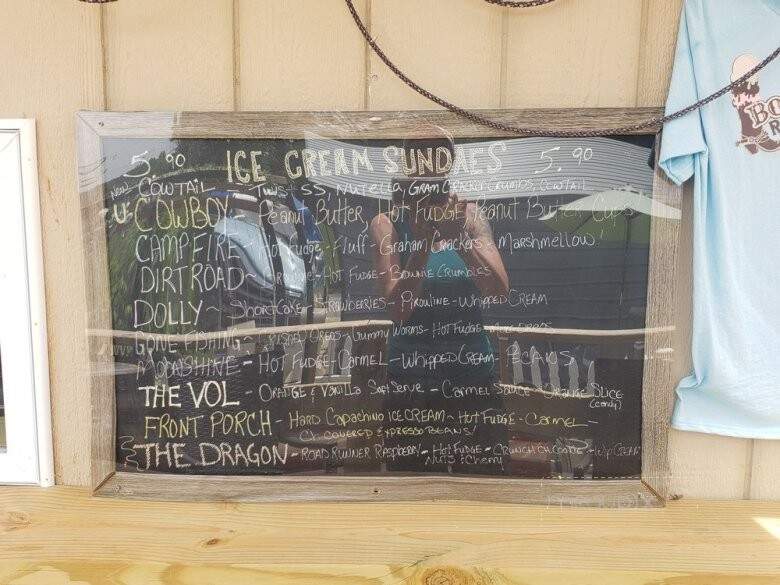 5.90 ICE CREAM SUNDAES 5.90
New COWTAIL - Twist SS, Nutella, Gram Cracker Crumbs, Cowtail
COWBOY - Peanut Butter, Hot Fudge, Peanut Butter Cups
CAMPFIRE - Hot Fudge - Fluff - Graham Crackers - Marshmellow
DIRT ROAD - Brownie - Hot Fudge - Brownie Crumbles
DOLLY ~ Shortcake - Strawberries - Pirouline - Whipped Cream
GONE FISHING - Oreos - Gummy Worms - Hot Fudge
MOONSHINE - Hot Fudge - Carmel - Whipped Cream - Pecans
THE VOL - Orange & Vanilla Soft Serve - Carmel Sauce - Orange Slice
(candy)
FRONT PORCH - Hard Capachino ICE CREAM ~ Hot Fudge - Carmel -
Ch. covered Expresso Beans!
THE DRAGON - Road Runner Raspberry - Hot Fudge - Crunch Ch. Cookie - Whip Cream
Nuts & Cherry
BO